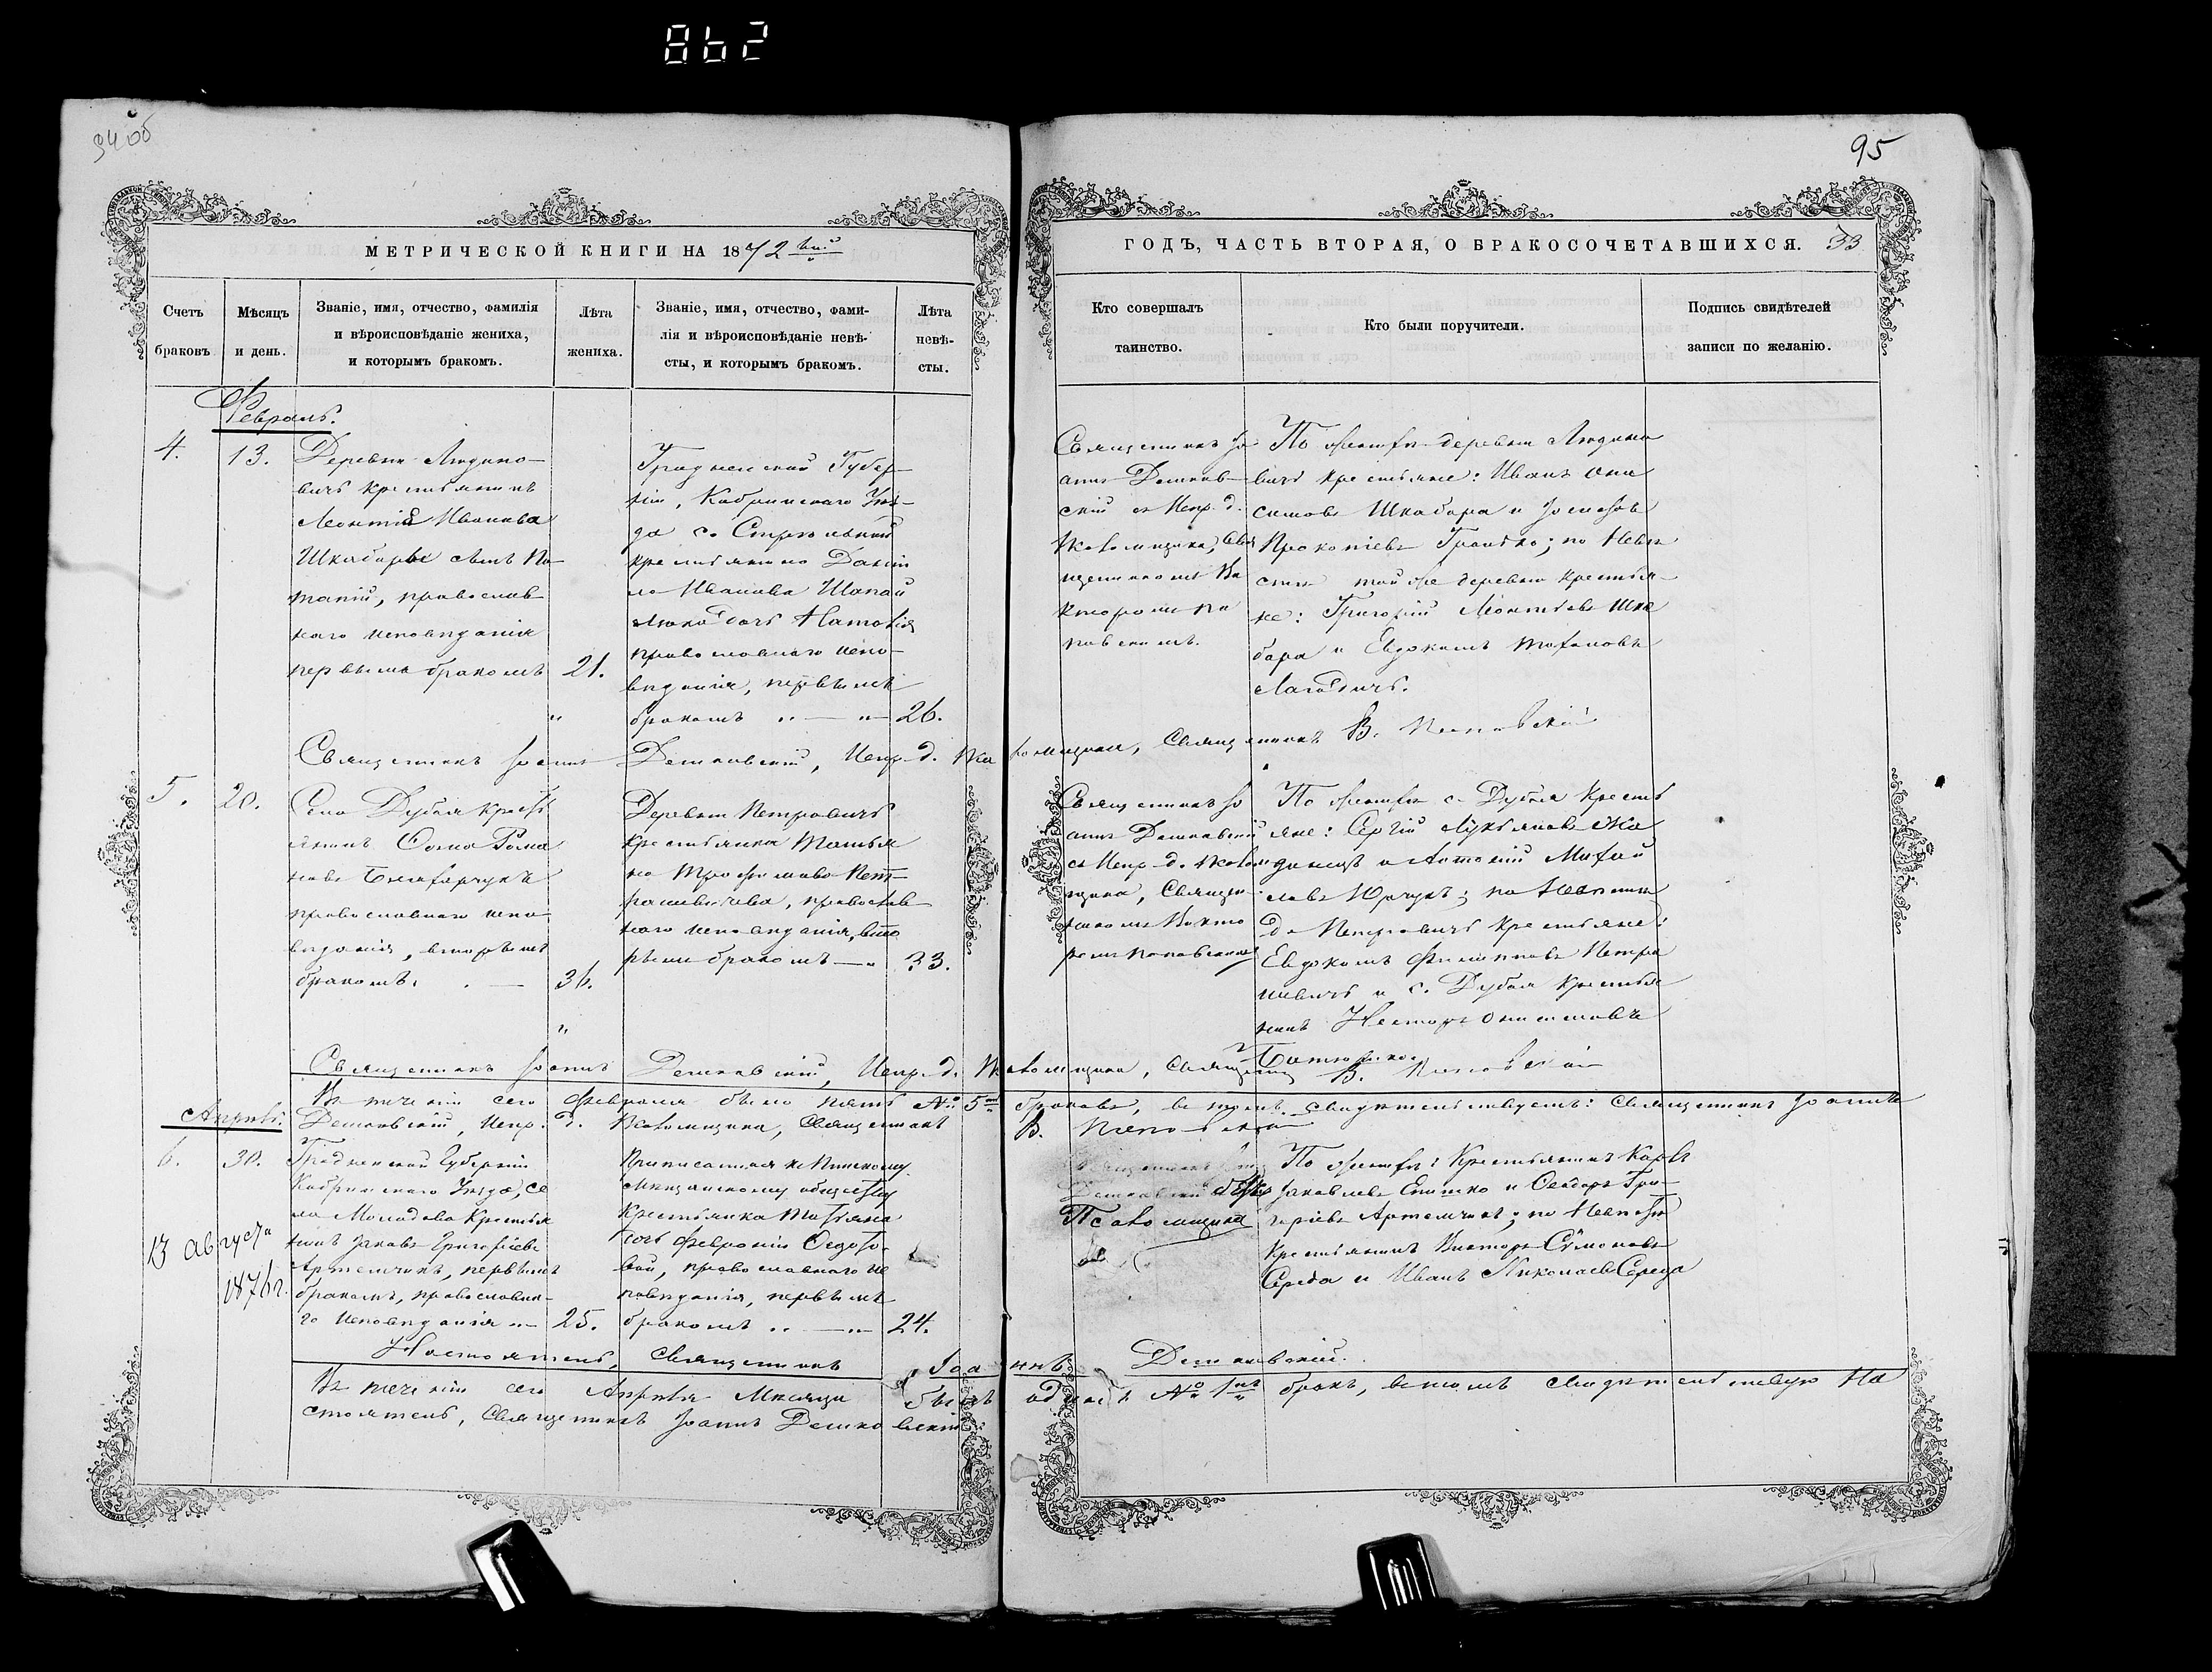 862
94 об
95
МЕТРИЧЕСКОЙ КНИГИ НА 1872
ГОДЪ, ЧАСТЬ ВТОРАЯ, О БРАКОСОЧЕТАВШИХСЯ. 33
Счетъ браковъ.
Мѣсяцъ и день.
Званіе, имя, отчество, фамилія
и вѣроисповѣданіе жениха,
и которымъ бракомъ.
Лѣта
жениха.
Званіе, имя, отчество, фами-
лія и вѣроисповѣданіе невѣ-
сты, и которымъ бракомъ.
Лѣта
невѣ-
сты.
Кто совершалъ
таинство.
Кто были поручители.
Подпись свидѣтелей
записи по желанію.
Февраль.
4.
13.
Деревни Людино-
вичъ крестьянинъ
Иванова
Шкабары сынъ По-
тапій, православ
наго исповѣданія
первымъ бракомъ
21.
Гродненской Губер-
ніи, Кобринскаго Уѣз-
да с.
крестьянина Дании
ла Иванова
дочь
православнаго испо-
вѣданія, первымъ
бракомъ
26.
Священникъ Іо
аннъ Дешков-
скій съ Испр. д.
Псаломщика, Свя
щенникомъ Ви
кторомъ По
повскимъ.
По женихѣ деревни Людино
вичъ крестьяне: Иванъ Они
симовъ Шкабара и
Прокопіевъ; по Невѣ
стѣ той же деревни крестья-
не: Григорій Леонтьевъ Шка
бара и Евдокимъ
Священникъ Іоаннъ Дешковскій, Испр. д. Псаломщика, Священникъ В. Поповскій
5.
20.
Села Дубоя кресть
янинъ Рома
новъ
православнаго испо
вѣданія, вторымъ
бракомъ.
36.
Деревни Петровичъ
крестьянка Татья
на Трофимова
православ
наго исповѣданія, вто
рымъ бракомъ
33.
Священникъ Іо
аннъ Дешковскій
съ Испр. д. Псалом
щика, Священ
никомъ Викто
ромъ Поповскимъ
По женихѣ с. Дубоя Кресть
яне: Сергій Лукьяновъ
и Антоній Михай
ловъ Юрчукъ; по Невѣстѣ
д. Петровичъ крестьяне:
Евдокимъ Филипповъ
и с. Дубоя Крестья
нинъ Несторъ Онисимовъ
Священникъ Іоаннъ Дешковскій, Испр. д. Псаломщика, Священникъ В. Поповскій
Въ теченіи сего Февраля было пять № 5 браковъ, въ томъ свидѣтельствуемъ: Священникъ Іоаннъ
Дешковскій, Испр. д. Псаломщика, Священникъ В. Поповскій
Апрѣль.
6.
30.
13 августа
1876 г.
Гродненской Губерніи
Кобринскаго Уѣзда, се
ла Молодова Крестья
нинъ Яковъ Григорьевъ
Артемчикъ, первымъ
бракомъ, православна-
го исповѣданія
25.
Приписанная къ Пинскому
мѣщанскому обществу
Крестьянка Татьяна
дочь Февроніи Ѳедоро-
вой, православнаго ис
повѣданія, первымъ
бракомъ
24.
Дешковскій
Псаломщика
По женихѣ: Крестьянинъ Карпъ
Яковлевъ и Ѳеодоръ Гри-
горіевъ Артемчикъ; по Невѣстѣ
Крестьянинъ Викторъ Симоновъ
Середа и Иванъ Николаевъ Середа
Настоятель, Священникъ Іоаннъ Дешковскій.
Въ теченіи сего Апрѣля Мѣсяца былъ одинъ № 1 бракъ, въ томъ свидѣтельствую На
стоятель, Священникъ Іоаннъ Дешковскій